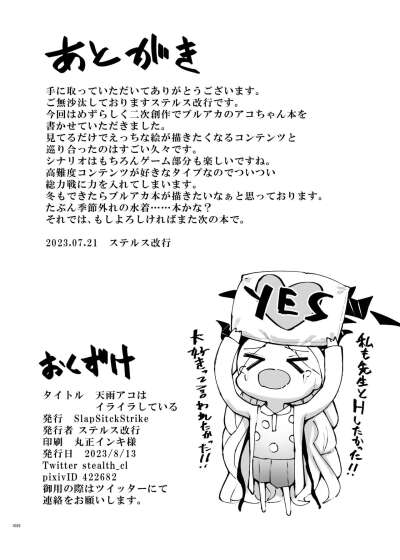 あとがき
手に取っていただいてありがとうございます。
ご無沙汰しておりますステルス改行です。
今回はめずらしく二次創作でブルアカのアコちゃん本を
書かせていただきました。
見てるだけでえっちな絵が描きたくなるコンテンツと
巡り合ったのはすごい久々です。
シナリオはもちろんゲーム部分も楽しいですね。
高難度コンテンツが好きなタイプなのでついつい
総力戦に力を入れてしまいます。
冬もできたらブルアカ本が描きたいなぁと思っております。
たぶん季節外れの水着……本かな？
それでは、もしよろしければまた次の本で。
2023.07.21　ステルス改行
YES
私も先生とHしたかった!!
大好きって言われたかった!!
おくづけ
タイトル　天雨アコは
イライラしている
発行　SlapSitckStrike
発行者 ステルス改行
印刷　丸正インキ様
発行日　2023/8/13
Twitter stealth_cl
pixivID 422682
御用の際はツイッターにて
連絡をお願いします。